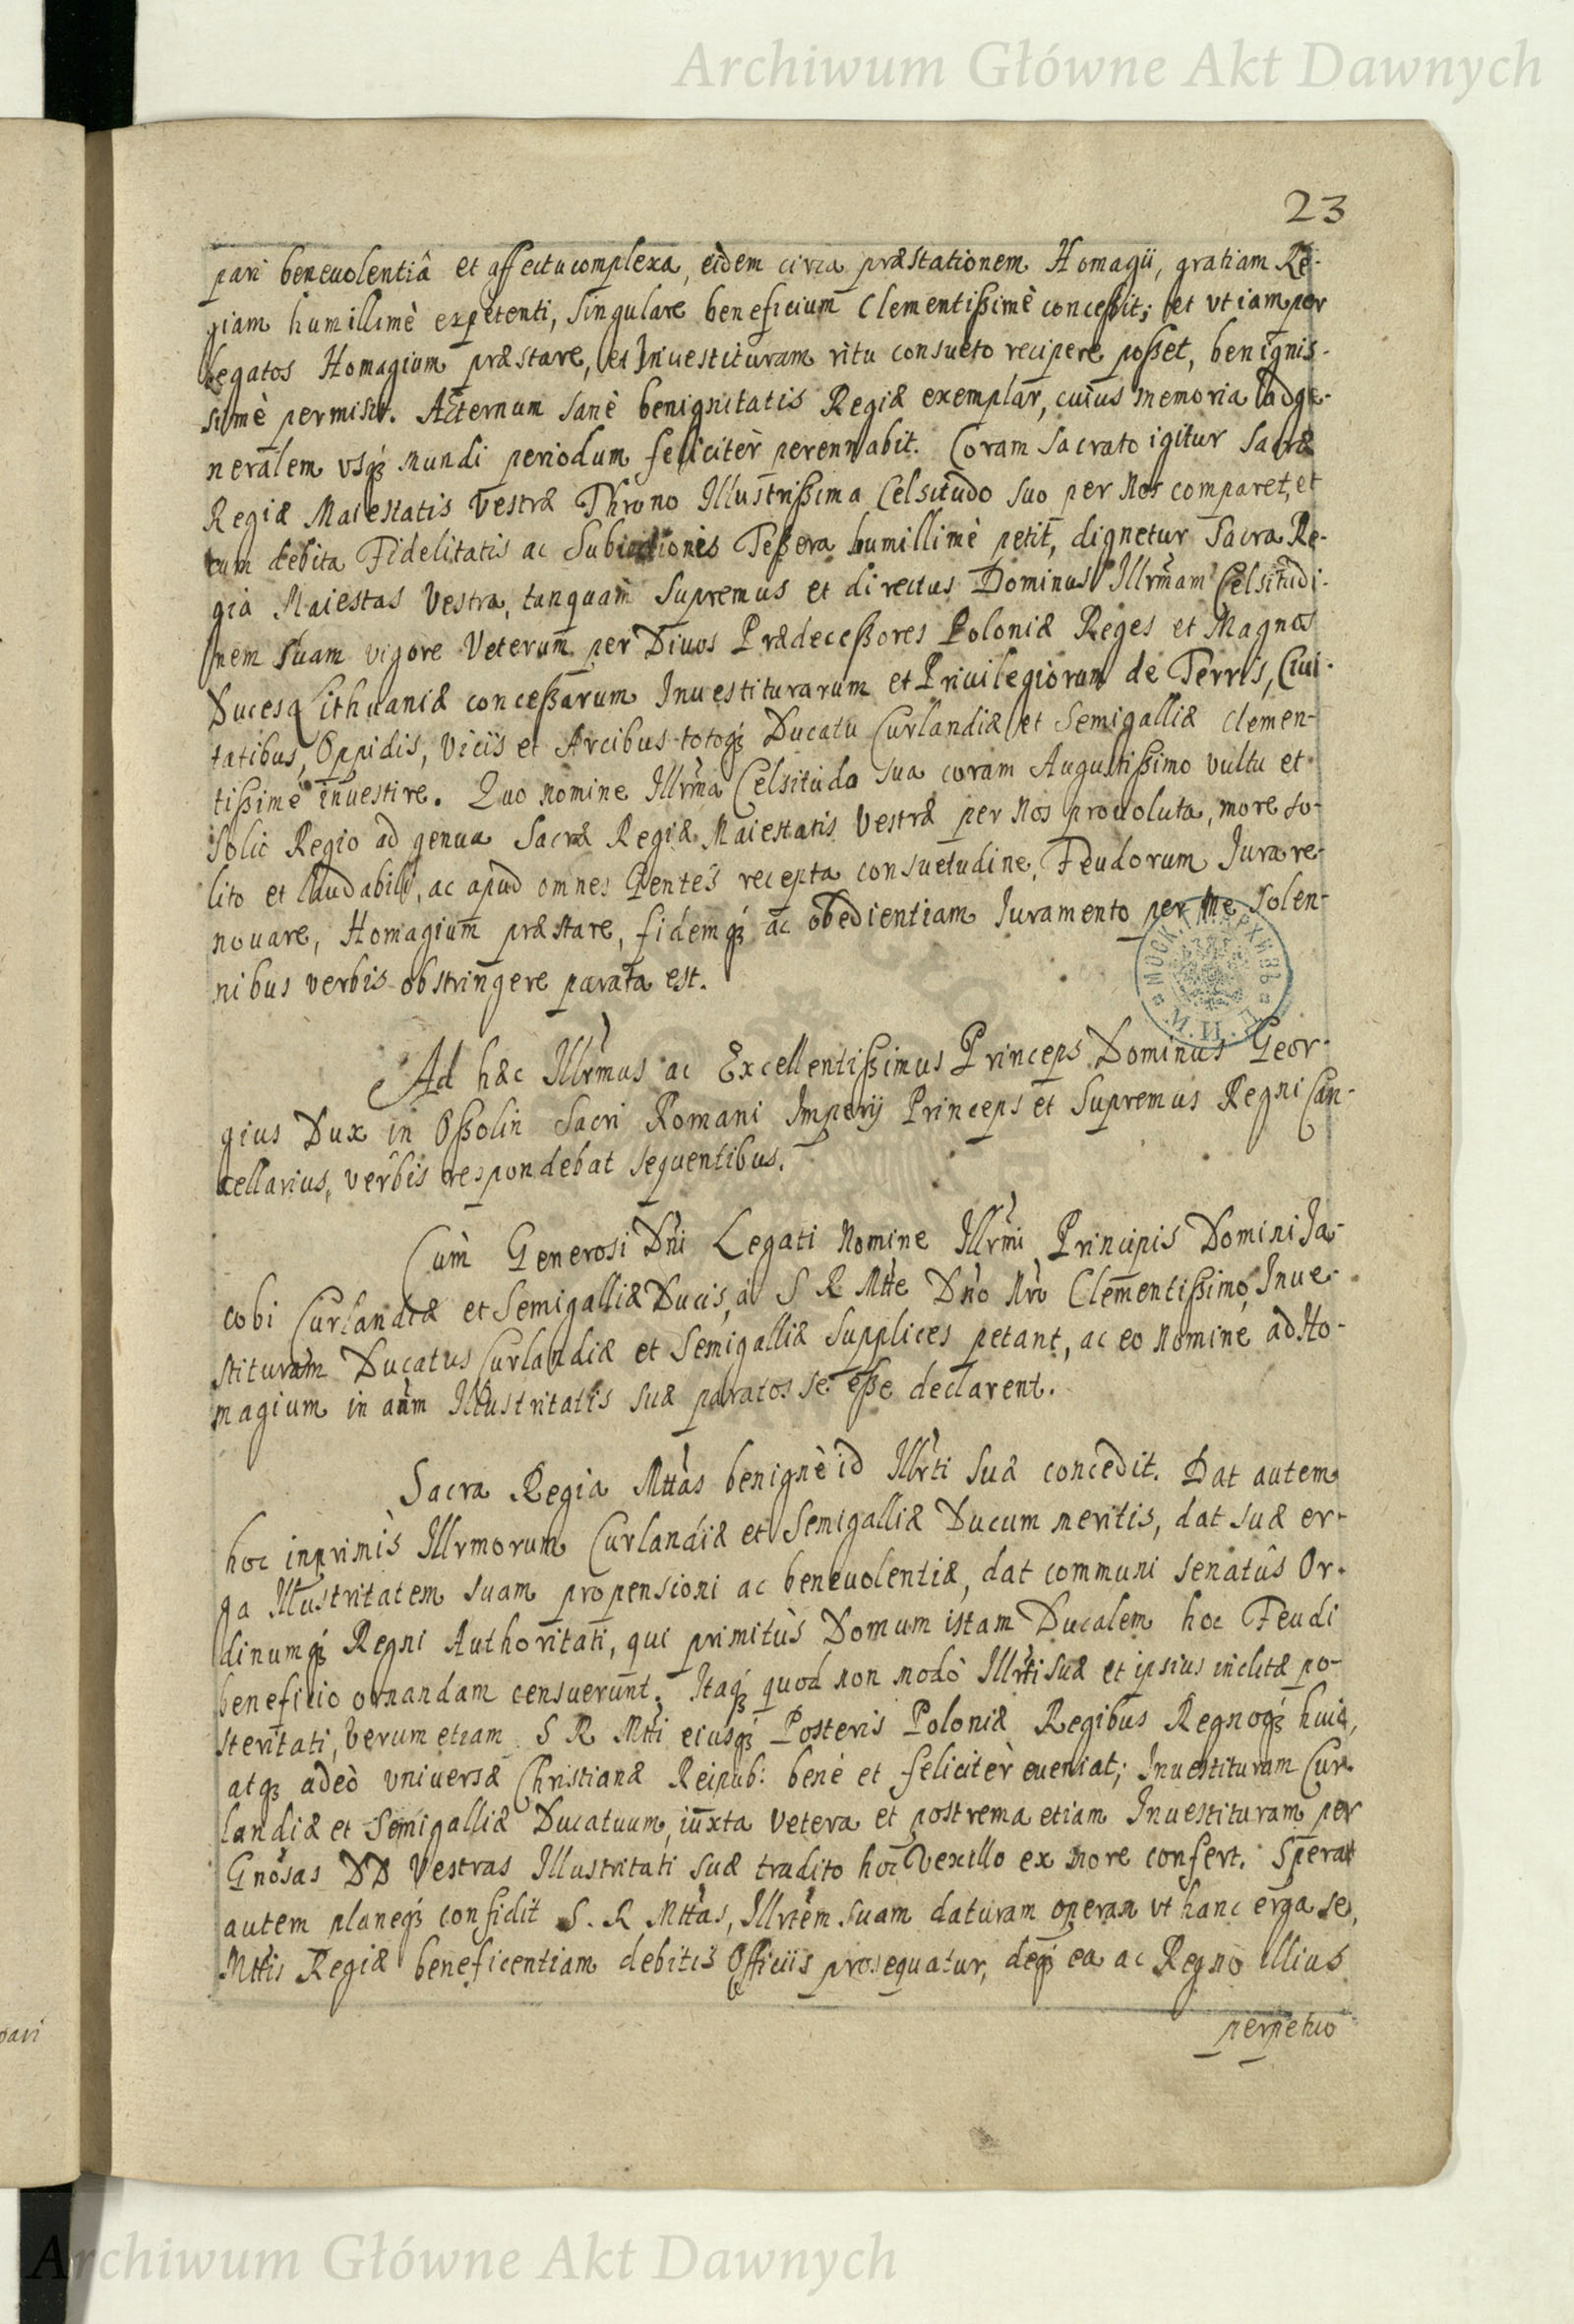 Archiwum Główne Akt Dawnych
23
pari beneuolentiâ et affectu complexa, eidem circa præstationem Homagii, gratiam Re-
giam humillimè expetenti, singulare beneficium Clementißimè conceßit; et vt iam per
Legatos Homagium præstare, et Inuestituram ritu consueto recipere poßet, benignis-
simè permisit. Æternum sanè benignitatis Regiæ exemplar, cuius memoria ad ge-
neralem vsq́ꝫ mundi periodum feliciter̀ perennabit. Coram sacrato igitur Sacræ
Regiæ Maiestatis Vestræ Throno Illustrißima Celsitudo suo per Nos comparet, et
cum debita Fidelitatis ac Subiectionis Teßera humillimè petit, dignetur Sacra Re-
gia Maiestas Vestra, tanquam supremus et directus Dominus Illrmam Celsitudi-
nem suam vigore Veterum per Diuos Prædeceßores Poloniæ Reges et Magnos
Duces Lithuaniæ conceßarum Inuestiturarum et Priuilegiorum de Terris, Ciui-
tatibus, Oppidis, Viciis et Arcibus totoq́ꝫ Ducatu Curlandiæ et Semigalliæ clemen-
tißimè inuestire. Quo nomine Illrma Celsitudo sua coram Augustißimo vultu et
solio Regio ad genua Sacræ Regiæ Maiestatis Vestræ per Nos prouoluta, more so-
lito et laudabili, ac apud omnes Gentes recepta consuetudine, Feudorum Iura re-
nouare, Homagium præstare, fidemq́ꝫ ac obedientiam Iuramento per me solen-
nibus verbis obstringere parata est.
Ad hæc Illrmus ac Excellentißimus Princeps Dominus Geor-
gius Dux in Oßolin Sacri Romani Imperij Princeps et Supremus Regni Can-
cellarius, verbis respondebat sequentibus.
Cum̀ Generosi Dńi Legati Nomine Illrmi Principis Domini Ja-
cobi Curlandiæ et Semigalliæ Ducis, à S R Mtte Dńo Nrò Clementißimo, Inue-
stituram Ducatus Curlandiæ et Semigalliæ supplices petant, ac eo nomine ad Ho-
magium in aãm Illustritatis suæ paratos se eße declarent.
Sacra Regia Mttas benignè id Illrti suæ concedit. Dat autem
hoc inprimis Illrmorum Curlandiæ et Semigalliæ Ducum meritis, dat suæ er-
ga Illustritatem suam propensioni ac beneuolentiæ, dat communi senatûs Or-
dinumq́ꝫ Regni Authoritati, qui primitùs Domum istam Ducalem hoc Feudi
beneficio ornandam censuerunt. Itaq́ꝫ quod non modò Illrti suæ et ipsius inclitæ po-
steritati, verum etiam S R Mtti eiusq́ꝫ Posteris Poloniæ Regibus Regnoq́ꝫ huic,
atqꝫ adeò vniuersæ Christianæ Reipub: benè et feliciter̀ eueniat; Inuestituram Cur-
landiæ et Semigalliæ Ducatuum, iuxta vetera et postrema etiam Inuestituram per
Gnosas DD Vestras Illustritati suæ tradito hoc Vexillo ex more confert. Sperat
autem planeq́ꝫ confidit S. R Mttas, Illrtem suam daturam operam vt hanc erga se,
Mttis Regiæ beneficentiam debitis Officiis prosequatur, deq́ꝫ ea ac Regno illius
perpetuo
pari
Archiwum Główne Akt Dawnych